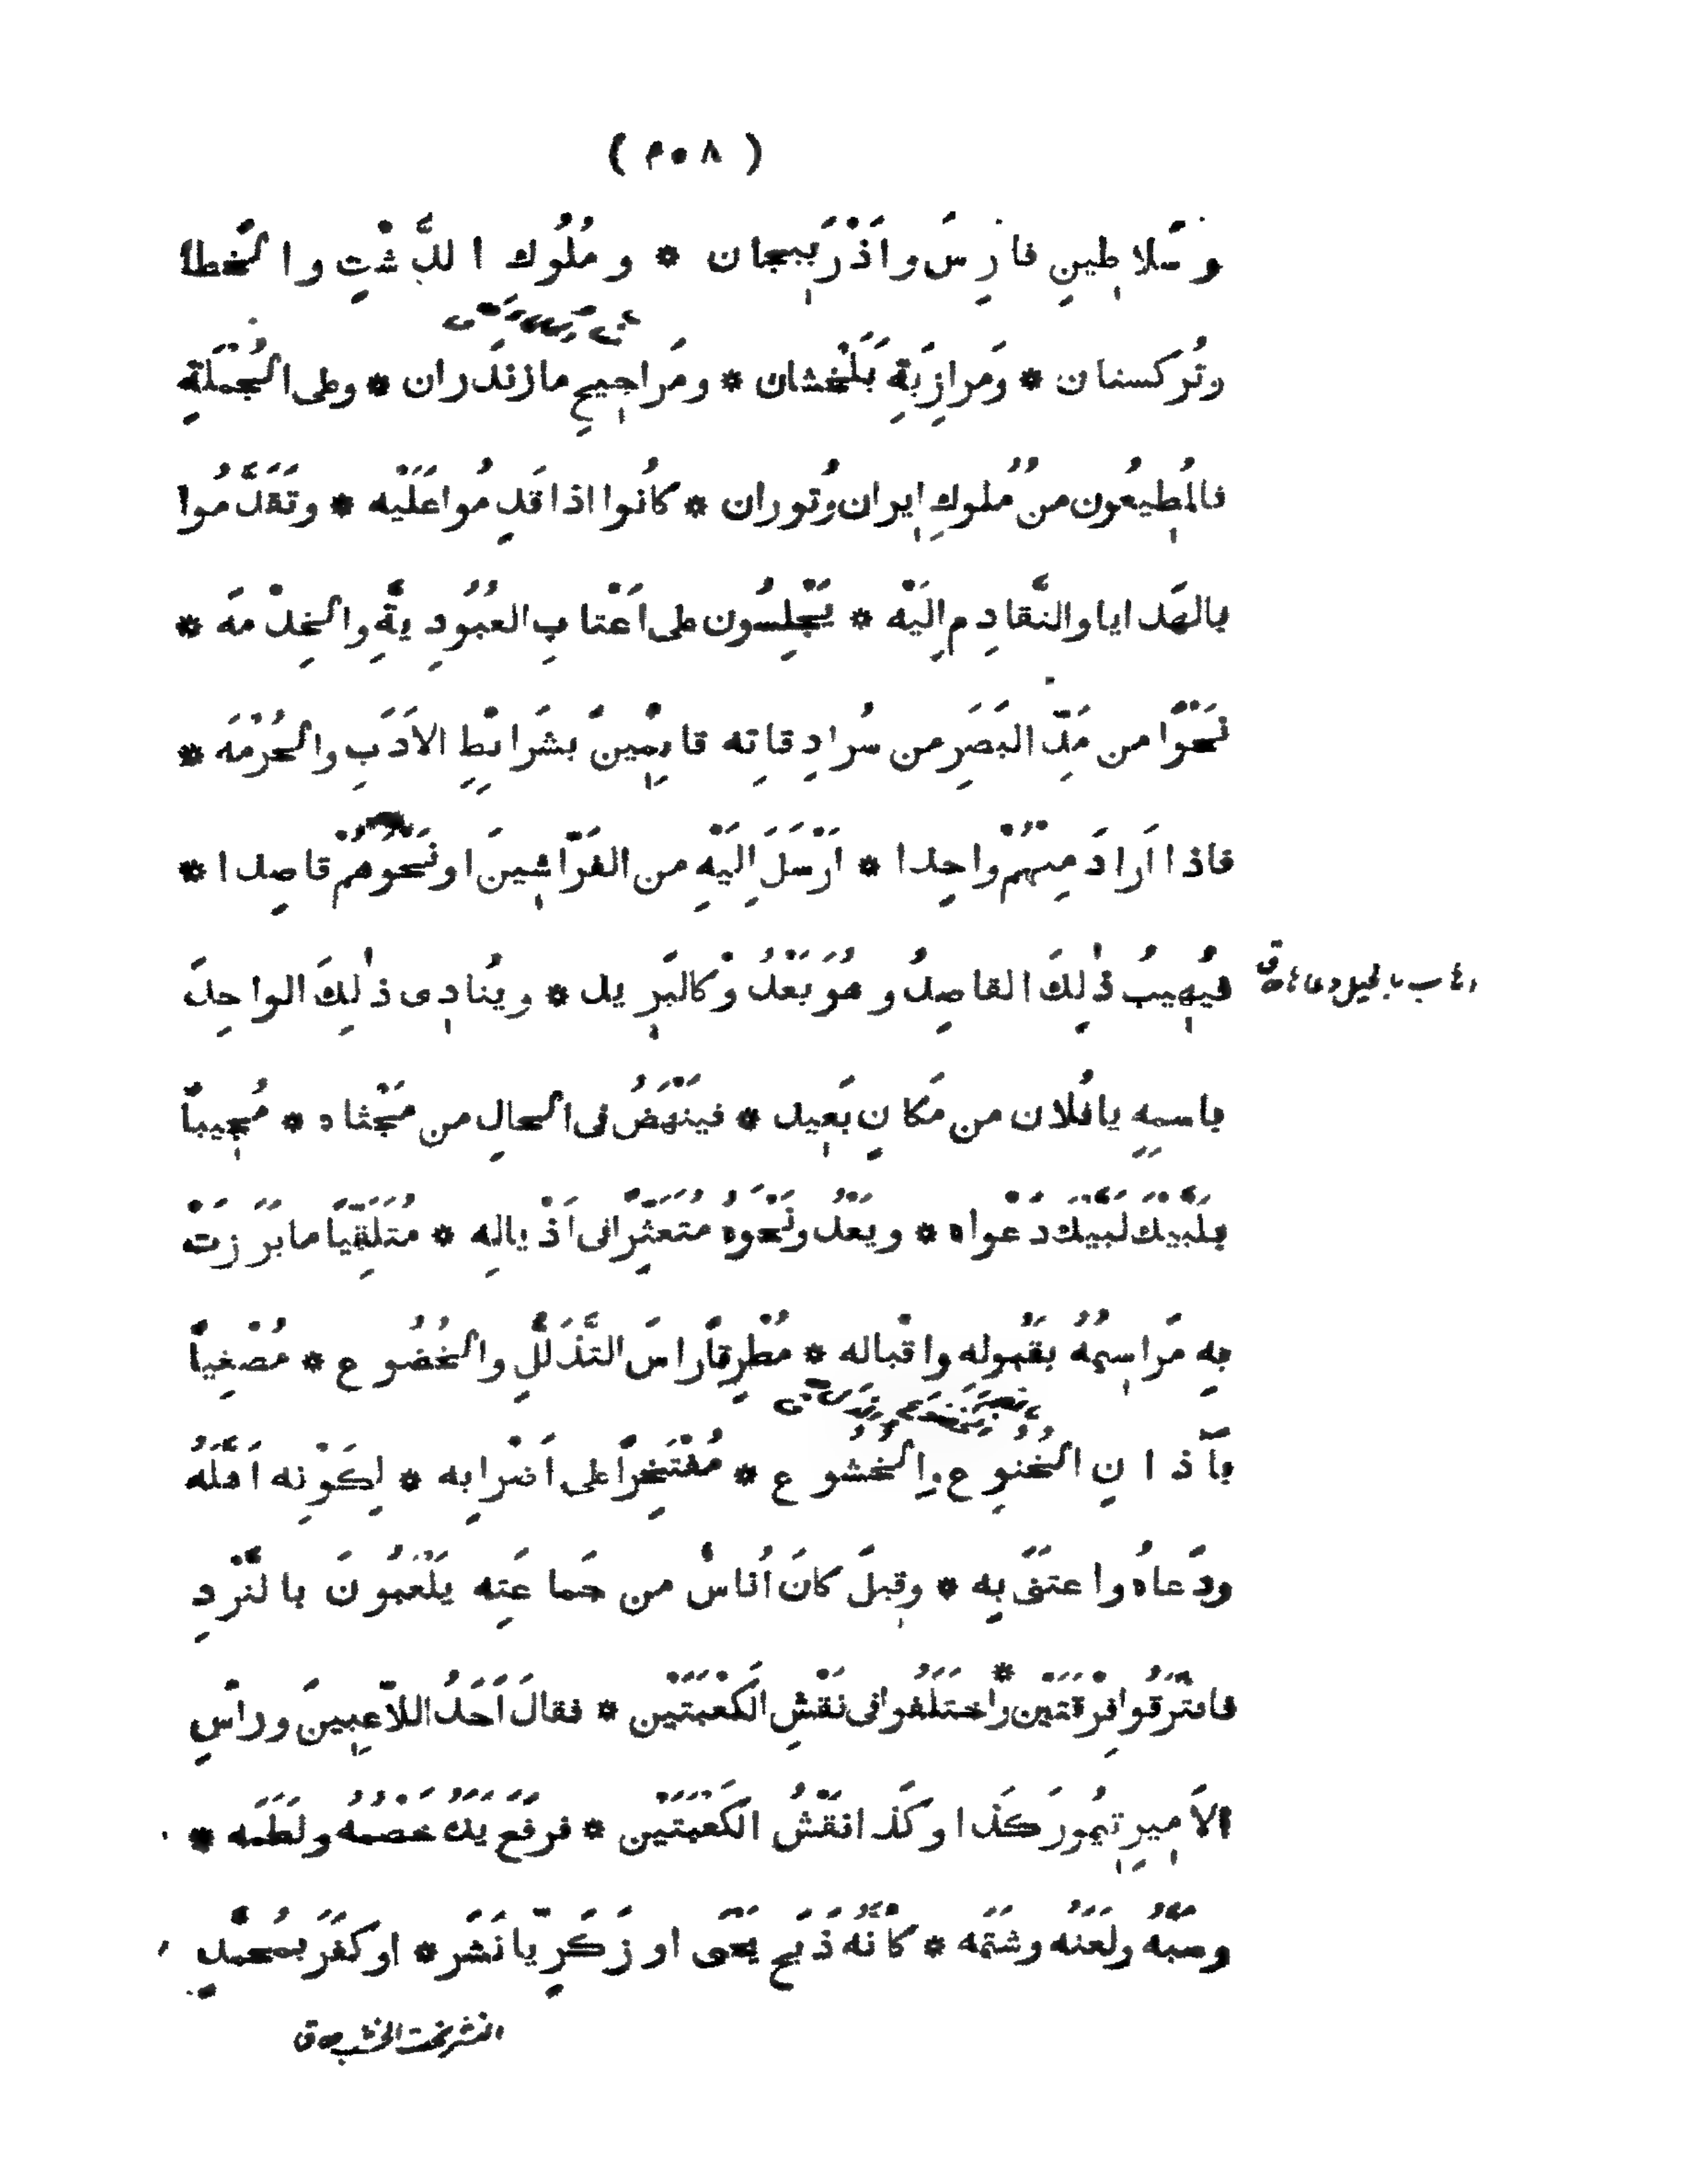 ( ٥٠٨ )
وسَلاطِينِ فارِسَ واَذْرَبِيجان * ومُلُوك الدَّشْتِ والخَطا
وتُركستان * ومَرازِبَةِ بَلَخْشان * ومَراجِيحِ مازنَدَران * وعلى الجُمْلَةِ
فالمُطِيعُون من مُلوكِ اِيران وتُوران * كانُوا اذا قَدِمُوا عَلَيْه * وتَقَدَّمُوا
بالهَدايا والتَّقادِم اِلَيْه * يَجْلِسُون على اَعْتابِ العُبُودِيَّةِ والخِدْمَه *
نَحْوًا من مَدِّ البَصَرِ من سُرادِقاتِه قائِمِينَ بشَرائطِ الاَدَبِ والحُرْمَه *
فاذا اَرادَ مِنْهُمْ واحِدا * اَرْسَلَ اِلَيْهِ من الفَرّاشِينَ او نَحْوِهِمْ قاصِدا *
فيُهِيبُ ذٰلِكَ القاصِدُ وهُوَ بَعْدُ وْكالبَرِيد * ويُنادِى ذٰلِكَ الواحِدَ
اهاب بالخيل دعاها ق
باسمِهِ يا فُلان من مَكانٍ بَعِيد * فيَنْهَضُ فى الحالِ من مَجْثاه * مُجِيباً
بلَبَّيْكَ لَبَّيْكَ دَعْواه * ويَعْدُو نَحْوهُ مُتَعَثِّرًا فى اَذْيالِه * مُتَلَقِّيًا ما بَرَزَتْ
بِه مَراسِمُهُ بقَبُولِه واقْبالِه * مُطْرِقاً راسَ التَّذَلُّلِ والخُضُوع * مُصْغِياً
بآذانِ الخُنُوعِ والخُشُوع * مُفْتَخِرًا على اَضْرابِه * لِكَوْنِه اَهَّلَهُ
ودَعاهُ واعتَنَى بِه * وقِيلَ كانَ اُناسٌ من جَماعَتِه يَلْعَبُونَ بالنَّرْدِ
فافْتَرَقُوا فِرْقَتَيْن * واخْتَلَفُوا فى نَقْشِ الكَعْبَتَيْن * فقالَ اَحَدُ اللاّعِبِينَ وراْسِ
الاَمِيرِ تِيمُورَ كَذا وكَذا نَقْشُ الكَعْبَتَيْن * فرَفَعَ يَدَهُ خَصْمُهُ ولَطَمَه *
وسَبَّهُ ولَعَنَهُ وشَتَمَه * كاَنَّهُ ذَبَحَ يَحْيَى او زَكَرِيّا نَشَر * او كَفَرَ بمُحَمَّدٍ
النشر نحت الخشب ق